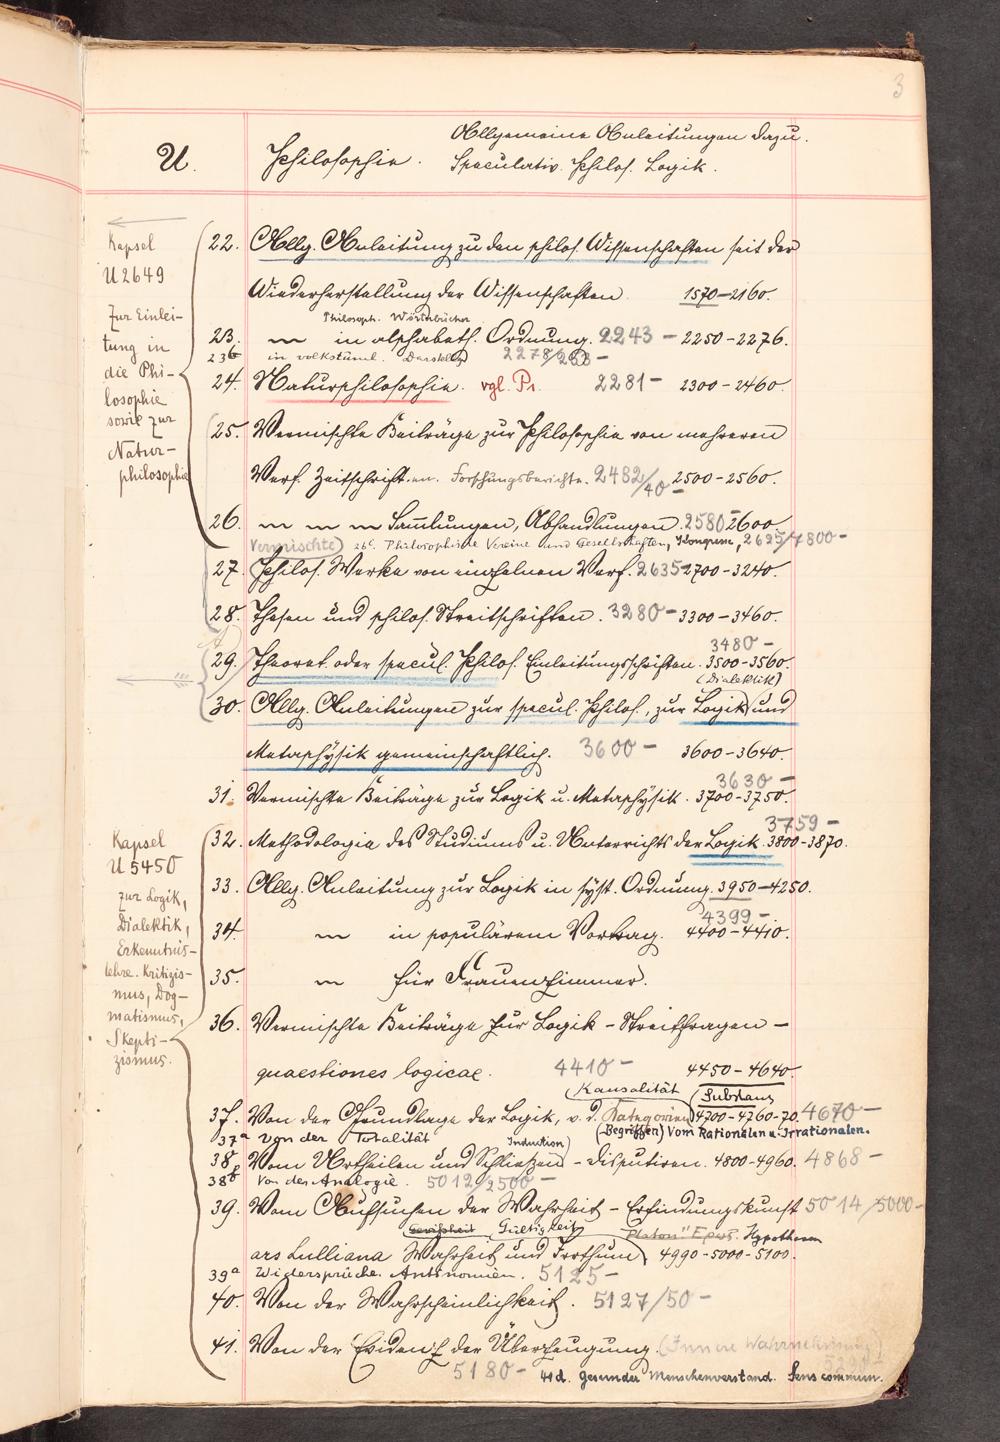 3
U. Philosophie. Allgemeine Anleitungen dazu.
Speculativ. Philos. Logik.
Kapsel
U 2649
Zur Einlei-
tung in
die Phi-
losophie
sowie zur
Natur-
philosophie
22. Allg. Anleitung zu den philos. Wissenschaften seit der
Wiederherstellung der Wissenschaften 1570-2160.
Philosoph. Wörterbücher
23. in alphabeth. Ordnung. 2243 - 2250-2276.
23b in volkstüml. Darstell.
24. Naturphilosophie. vgl. P1. 2281- 2300-2460.
25. Vermischte Beiträge zur Philosophie von mehreren
Verf. Zeitschriften. Forschungsberichte. 2482/40- 2500-2560.
26. Sammlungen, Abhandlungen. 2580- 2600
Vermischte 26c. Philosophische Vereine und Gesellschaften, Kongresse, 2625/7800-
27. Philos. Werke von einzelnen Verf. 2635- 2700-3240.
28. Thesen und philos. Streitschriften. 3280- 3300-3460.
3480-
29. Theoret. oder specul. Philos. Einleitungsschriften. 3500-3560.
(Dialektik)
30. Allg. Anleitungen zur specul. Philos., zur Logik und
Metaphysik gemeinschaftlich. 3600- 3600-3640.
3630-
31. Vermischte Beiträge zur Logik u. Metaphysik. 3700-3750.
3759-
Kapsel
U 5450
zur Logik,
Dialektik,
Erkenntnis-
lehre. Kritizis-
mus, Dog-
matismus,
Skepti-
zismus.
32. Methodologie des Studiums u. Unterrichts der Logik. 3800-3870.
33. Allg. Anleitung zur Logik in syst. Ordnung. 3950-4250.
4399-
34. in populärem Vortrag. 4400-4410.
35. für Frauenzimmer.
36. Vermischte Beiträge zur Logik - Streitfragen -
quaestiones logicae. 4410- 4450-4640.
(Kausalität (Substanz
37. Von der Grundlage der Logik, v. d. Kategorien 4700-4760-70. 4670-
37a Von der Totalität (Begriffen) Vom Rationalen u. Irrationalen.
Induction)
38. Vom Urtheilen und Schließen - disputiren. 4800-4960. 4868-
38b Von der Analogie. 5012/2500-
39. Vom Aufsuchen der Wahrheit - Erfindungskunst 5014/5000-
Gewißheit Gültigkeit Hypothesen
ars Lulliana Wahrheit und Irrthum 4990-5000-5100.
39a Widersprüche. Antinomien. 5125-
40. Von der Wahrscheinlichkeit. 5127/50-
41. Von der Evidenz der Überzeugung. (Innere Wahrnehmung)
5180- 41d. Gesunder Menschenverstand. Sens commun.